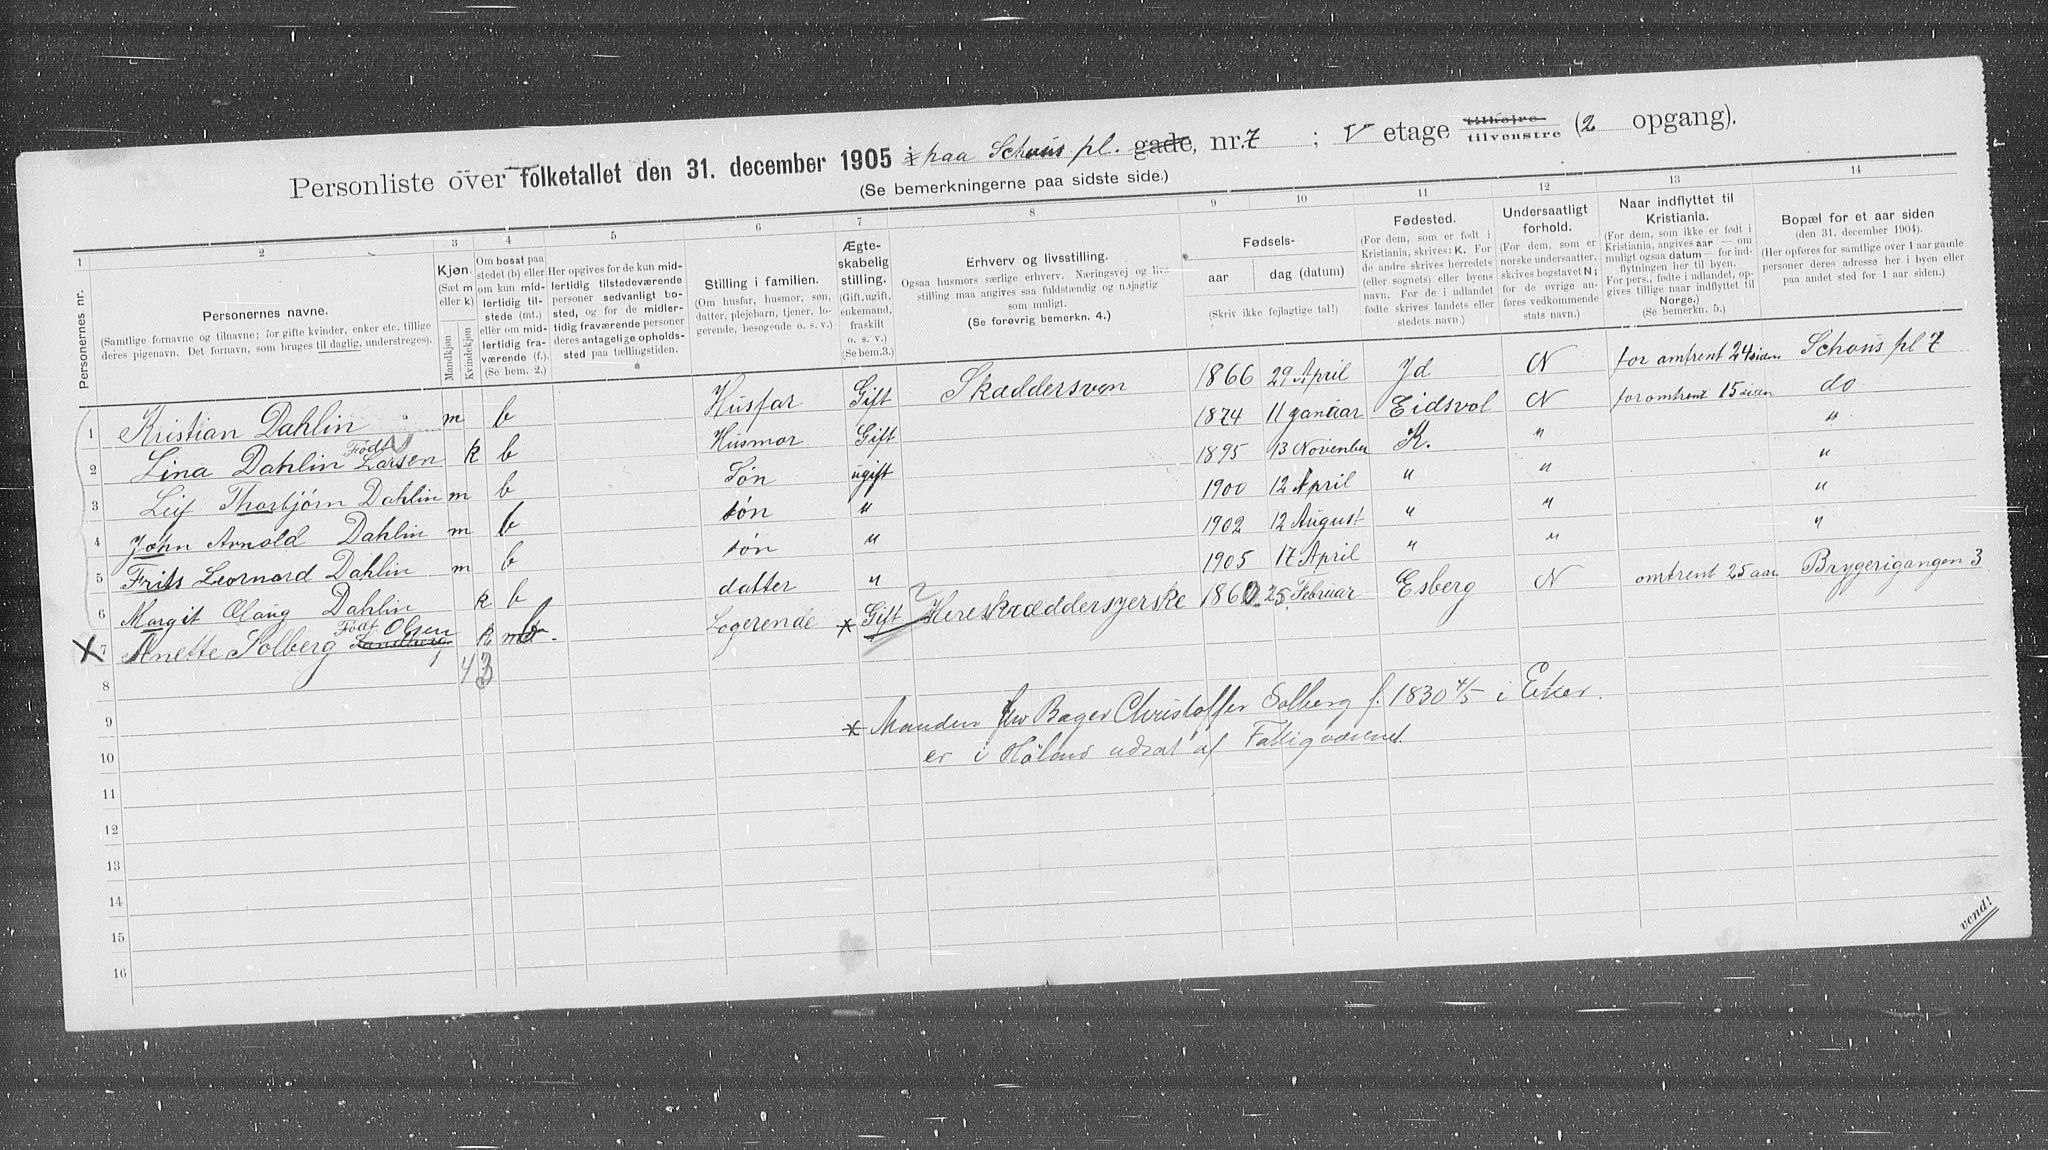 Personliste over folketallet den 31. december 1905 i paa Schous pl. gade, nr. 7 ; V etage tilhøjre tilvenstre (2 opgang).
(Se bemerkningerne paa sidste side.)
1 2 3 4 5 6 7 8 9 10 11 12 13 14
Personernes nr.
Personernes navne.
(Samtlige fornavne og tilnavne; for gifte kvinder, enker etc. tillige deres pigenavn. Det fornavn, som bruges til daglig, understreges).
Kjøn.
(Sæt m eller k)
Mandkjøn
Kvindekjøn
Om bosat paa stedet (b) eller om kun midlertidig tilstede (mt.) eller om midlertidig fraværende (f.) (Se bem. 2.)
Her opgives for de kun midlertidig tilstedeværende personer sedvanligt bosted, og for de midlertidig fraværende personer deres antagelige opholdssted paa tællingstiden.
Stilling i familien.
(Om husfar, husmor, søn, datter, plejebarn, tjener, logerende, besøgende o. s. v.)
Ægteskabelig stilling.
(Gift, ugift, enkemand, fraskilt o. s. v.) (Se bem. 3.)
Erhverv og livsstilling.
Ogsaa husmors særlige erhverv. Næringsvej og livsstilling maa angives saa fuldstændig og nøjagtig som muligt.
(Se forøvrig bemerkn. 4.)
Fødsels-
aar dag (datum)
(Skriv ikke fejlagtige tal!)
Fødested.
(For dem, som er født i Kristiania, skrives: K. For de andre skrives herredets (eller sognets) eller byens navn. For de i udlandet fødte skrives landets eller stedets navn.)
Undersaatligt forhold.
(For dem, som er norske undersaatter, skrives bogstavet N; for de øvrige anføres vedkommende stats navn.)
Naar indflyttet til Kristiania.
(For dem, som ikke er født i Kristiania, angives aar — om muligt ogsaa datum — for indflytningen her til byen. For pers., fødte i udlandet, opgives tillige naar indflyttet til Norge.) (Se bemerkn. 5.)
Bopæl for et aar siden
(den 31. december 1904).
(Her opføres for samtlige over 1 aar gamle personer deres adresse her i byen eller paa andet sted for 1 aar siden.)
1 Kristian Dahlin m b Husfar Gift Skæddersven 1866 29 April Id N for omtrent 24 siden Schous pl 7
2 Lina Dahlin Født Larsen k b Husmor Gift 1874 11 Januar Eidsvol N for omtrent 15 siden do
3 Leif Thorbjørn Dahlin m b Søn ugift 1895 13 November K. " "
4 John Arnold Dahlin m b søn " 1900 12 April " " "
5 Frits Leornard Dahlin m b søn " 1902 12 August " " "
6 Margit Olaug Dahlin k b datter " 1905 17 April " " "
X 7 Anette Solberg Født Olsen k mt b. Logerende * Gift ? Hereskræddersyerske 1860 25 Februar Esberg N omtrent 25 aar Brygerigangen 3
8 4 3
9 * Manden fhv Bager Christoffer Solberg f. 1830 4/5 i Eker.
10 er i Høland udsat af Fattigvæsenet.
11
12
13
14
15
16
vend!